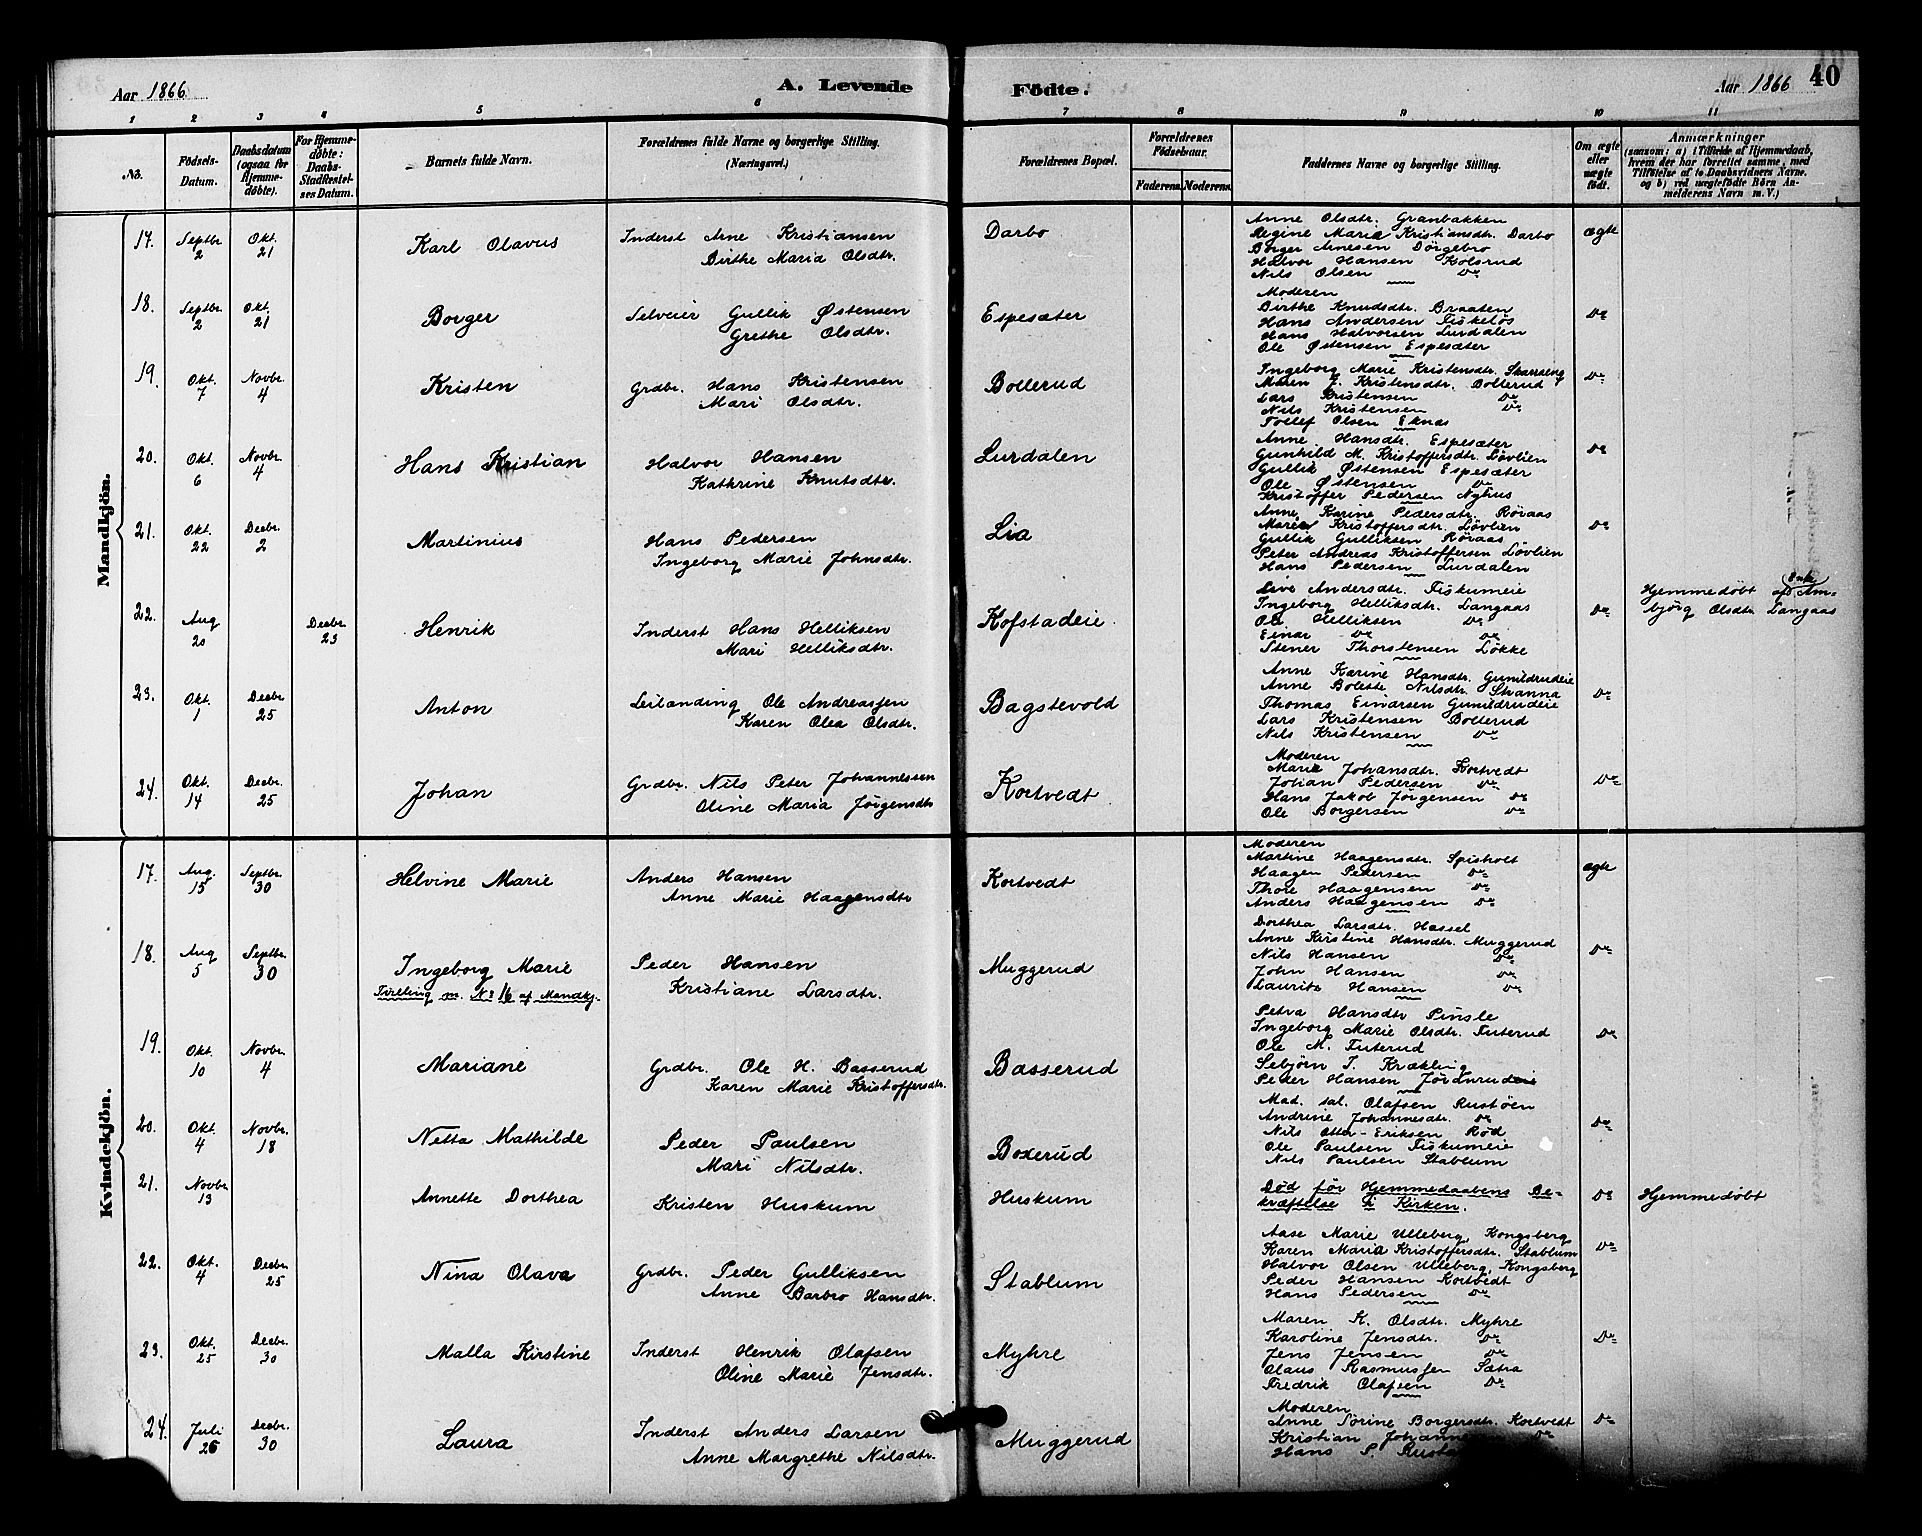 Aar 1866 A. Levende Födte. Aar 1866 40
1 2 3 4 5 6 7 8 9 10 11
No. Födsels-Datum. Daabsdatum (ogsaa for Hjemme-döbte). For Hjemme-döbte: Daabs-Stadfæstel-ses Datum. Barnets fulde Navn. Forældrenes fulde Navne og borgerlige Stilling. (Næringsvei.) Forældrenes Bopæl. Forældrenes Födselsaar. Faderens. Moderens. Faddernes Navne og borgerlige Stilling. Om ægte eller uægte födt. Anmærkninger (saasom: a) i Tilfælde af Hjemmedaab, hvem der har forrettet samme, med Tilföielse af to Daabsvidners Navne. og b) ved uægtefödte Börn An-melderens Navn m. V.)
Mandkjön.
17. Septbr. 2 Okt. 21 Karl Olavus Inderst Arne Kristiansen Darbo ægte
Birthe Maria Olsdtr.
Anne Olsdtr. Granbakken
Regine Maria Kristiansdtr. Darbo
Borger Arnesen Dörgebro
Halvor Hansen Kolsrud
Nils Olsen Do
18. Septbr. 2 Okt. 21 Borger Selveier Gullik Østensen Espesæter Do
Grethe Olsdtr.
Moderen
Birthe Knudsdtr. Braaten
Hans Andersen Fiskeløs
Hans Halvorsen Lurdalen
Ole Østensen Espesæter
19. Okt. 7 Novbr. 4 Kristen Grdbr. Hans Kristensen Bollerud Do
Mari Olsdtr.
Ingeborg Marie Kristensdtr.
Maren J. Kristensdtr. Bollerud
Lars Kristensen Do
Nils Kristensen Do
Tollef Olsen Eknæs
20. Okt. 6 Novbr. 4 Hans Kristian Halvor Hansen Lurdalen Do
Kathrine Knutsdtr.
Anne Hansdtr. Espesæter
Gunhild M. Kristoffersdtr. Løvlien
Gullik Østensen Espesæter
Ole Østensen Do
Kristoffer Pedersen Nyhus
21. Okt. 22 Decbr. 2 Martinius Hans Pedersen Lia Do
Ingeborg Marie Johnsdtr.
Anne Karine Pedersdtr. Røraas
Maren Kristoffersdtr. Løvlien
Gullik Gulliksen Røraas
Peter Andreas Kristoffersen Løvlien
Hans Pedersen Lurdalen
22. Aug. 20 Decbr. 23 Henrik Inderst Hans Helliksen Kofstadeie Do Hjemmedøbt af Enk. Am-
Mari Helliksdtr. bjørg Olsdtr. Langaas
Live Andersdtr. Fiskumeie
Ingeborg Helliksdtr. Langaas
Ole Helliksen Do
Einar Do Do
Stener Thorstensen Løkke
23. Okt. 1 Decbr. 25 Anton Leilænding Ole Andreassen Bagstevold Do
Karen Olea Olsdtr.
Anne Karine Hansdtr. Gunildrudeie
Anne Bolette Nilsdtr. Stranna
Thomas Einarsen Gunildrudeie
Lars Kristensen Bollerud
Nils Kristensen Do
24. Okt. 14 Decbr. 25 Johan Grdbr. Nils Peter Johannessen Kortvedt Do
Oline Maria Jørgensdtr
Moderen
Marie Johansdtr. Kortvedt
Johan Pedersen Do
Hans Jakob Jørgensen Do
Ole Borgersen Do
Kvindekjön.
17. Aug. 15 Septbr. 30 Helvine Marie Anders Hansen Kortvedt ægte
Anne Marie Haagensdtr
Moderen
Martine Haagensdtr. Spisholt
Haagen Petersen Do
Thore Haagensen Do
Anders Haagensen Do
18. Aug 5 Septbr. 30 Ingeborg Marie Peder Hansen Muggerud Do
Tvilling m. No 16 af Mandkj. Kristiane Larsdtr.
Dorthea Larsdtr. Hassel
Anne Kristine Hansdtr. Muggerud
Nils Hansen Do
John Hansen Do
Lauritz Hansen Do
19. Okt. 10 Novbr. 4 Mariane Grdbr. Ole H. Basserud Basserud Do
Karen Marie Kristoffersdtr.
Petra Hansdtr Pinsle
Ingeborg Marie Olsdtr. Tuterud
Ole M. Tuterud
Sebjørn T. Krækling
Peder Hansen Jørdnrudeie
20. Okt. 4 Novbr. 18 Netta Mathilde Peder Paulsen Boxerud Do
Mari Nilsdtr.
Mad. sal. Olafsen Rustøen
Andrine Johannesdtr. Do
Nils Otter-Eriksen Rød
Ole Paulsen Fiskumeie
Nils Paulsen Stablum
21. Novbr 13 Annette Dorthea Kristen Huskum Huskum Do Hjemmedøbt
Død før Hjemmedaabens Be-
kræftelse i Kirken.
22. Okt. 4 Decbr. 25 Nina Olava Grdbr. Peder Gulliksen Stablum Do
Anne Barbro Hansdtr.
Aase Marie Ulleberg, Kongsberg
Karen Maria Kristoffersdtr. Stablum
Halvor Olsen Ulleberg, Kongsberg
Peder Hansen Kortvedt
Hans Pedersen Do
23. Okt. 25 Decbr. 30 Malla Kirstine Inderst Henrik Olafsen Myhre Do
Oline Marie Jensdtr.
Maren K. Olsdtr. Myhre
Karoline Jensdtr. Do
Jens Jensen Do
Claus Rasmussen Sætra
Fredrik Olafsen Do
24. Juli 26 Decbr. 30 Laura Inderst Anders Larsen Muggerud Do
Anne Margrethe Nilsdtr.
Moderen
Anne Sørine Borgersdtr. Kortvedt
Kristian Johanne Do
Hans P. Rust